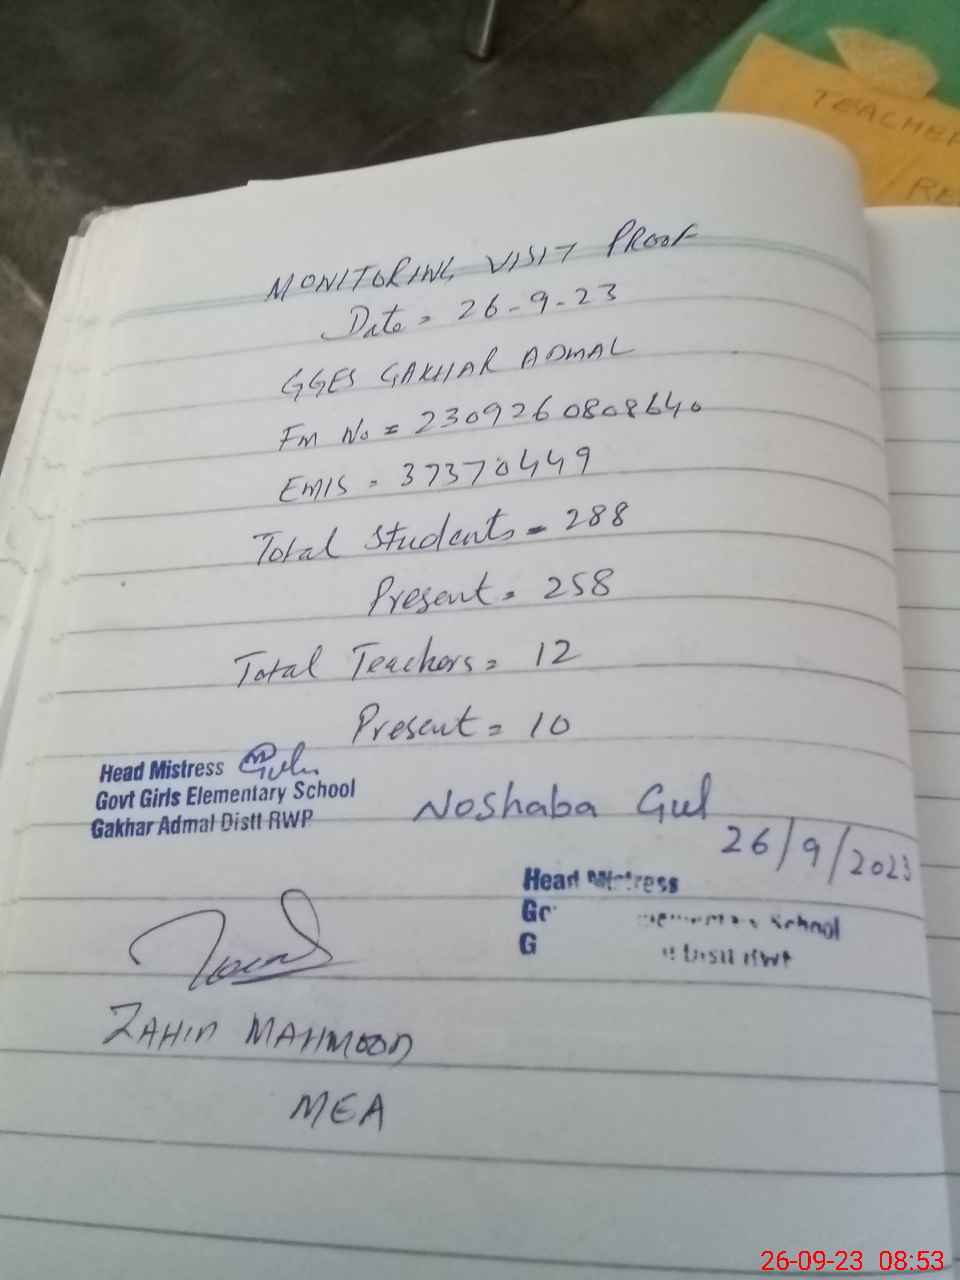 TEACHER
RE
MONITORING VISIT PROOF
Date = 26-9-23
GGES GAKHAR ADMAL
Fm No = 2309260808640
EMIS = 37370449
Total Students = 288
Present = 258
Total Teachers = 12
Present = 10
Head Mistress Gul
Govt Girls Elementary School
Gakhar Admal Distt RWP
Noshaba Gul
26/9/2023
Head Mistress
School
RWP
ZAHID MAHMOOD
MEA
26-09-23 08:53